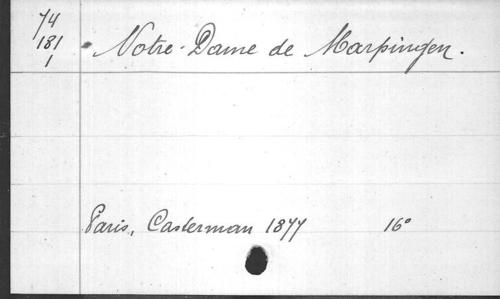 74
181
1
Notre-Dame de Marpingen.
Paris, Casterman 1877 16°